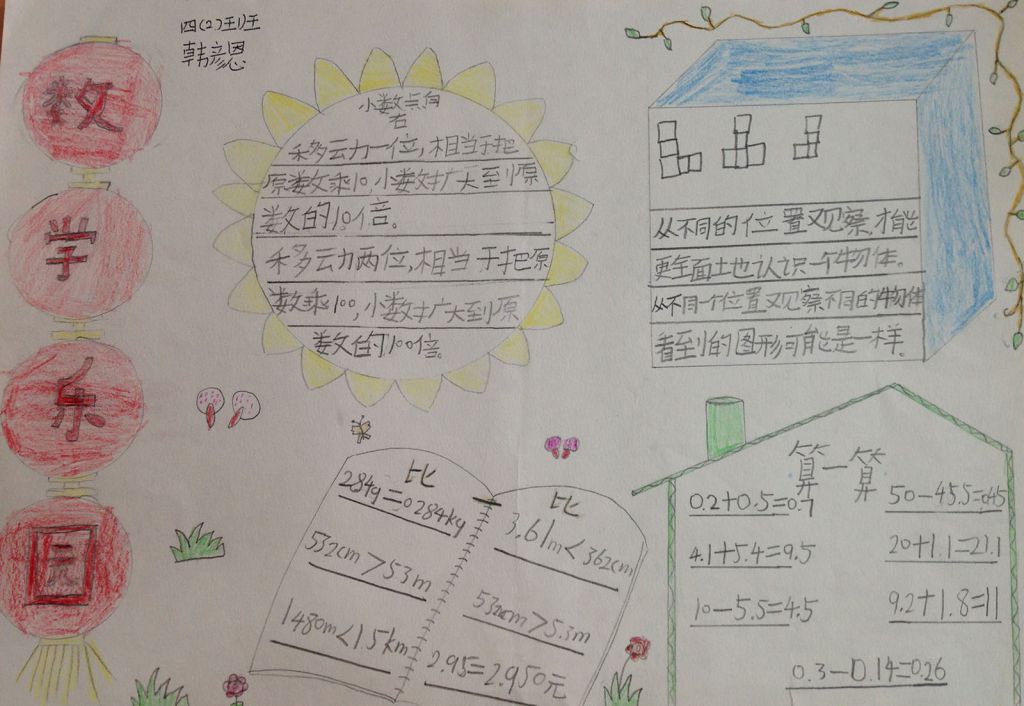 四(2)班
韩彦恩
数
学
乐
园
小数点向
右
移动一位,相当于把
原数乘10,小数扩大到原
数的10倍。
移动两位,相当于把原
数乘100,小数扩大到原
数的100倍。
从不同的位置观察,才能
更全面地认识一个物体。
从不同一个位置观察不同的物体
看到的图形可能是一样。
比
284g=0.284kg
532cm>53m
1480m<1.5km
比
3.61m<362cm
532cm>5.3m
2.95=2.950元
算一算
0.2+0.5=0.7
4.1+5.4=9.5
10-5.5=4.5
50-45.5=0.45
20+1.1=21.1
9.2+1.8=11
0.3-0.14=0.26